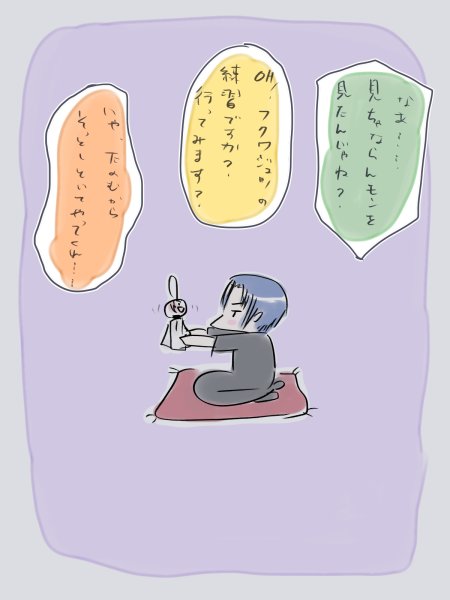 なあ……
見ちゃならんモンを
見たんじゃね?
OH!フクワジュツの
練習ですか?
行ってみます?
いや、たのむから
そっとしといてやってくれ……